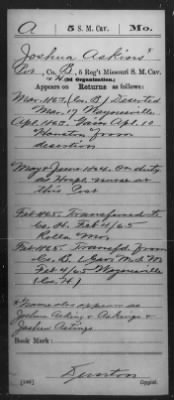 A 5 S. M. Cav. Mo.
Joshua Askins
Co. B, 5 Reg't Missouri S. M. Cav.
(Old Organization)
Appears on Returns as follows:
Mar. 1863 (Co. B) Deserted
Mar. 17 Waynesville
Apl. 1863, Gain Apl. 10
Houston from
desertion
May & June 1864 On duty
as Hospt. nurse at
this Post
Feb 1865 Transferred to
Co. H. Feb 4/65
Rolla Mo.
Feb 1865. Transfd. from
Co. B.
Feb 4/65 Waynesville
(Co. H)
Name also appears as
Joshua Asking &
Joshua Astings
Book Mark:
Copyist.